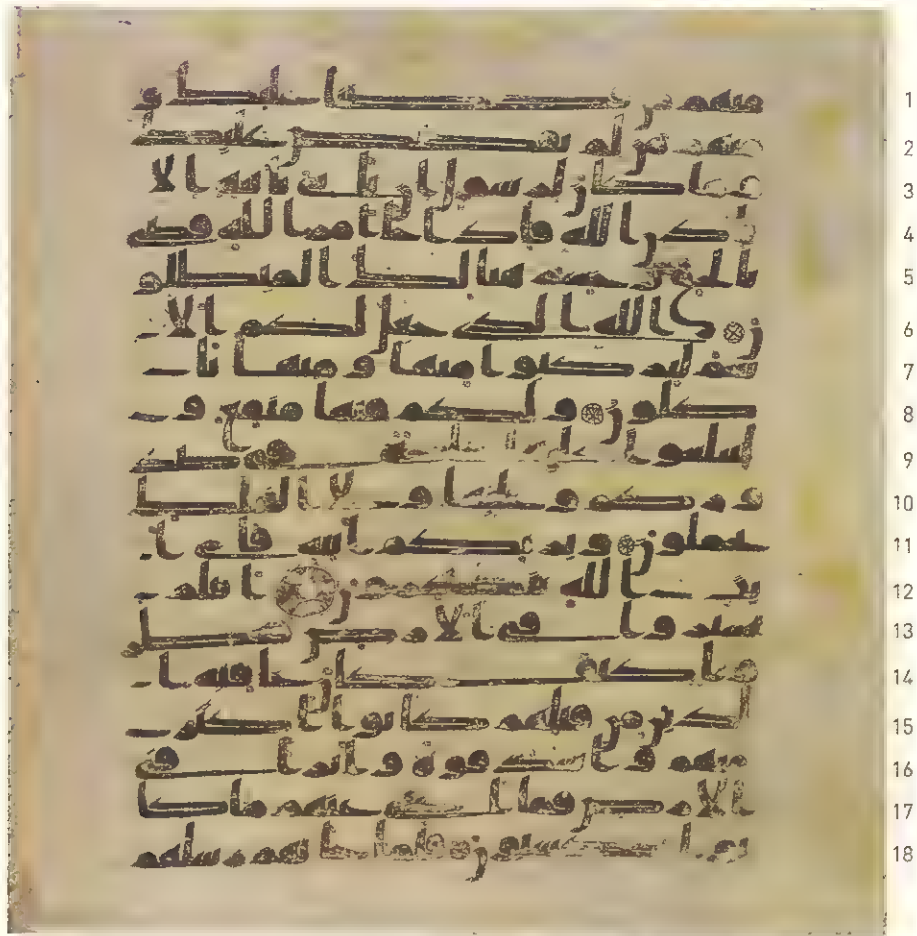 1 منهم من قصصنا عليك و
2 منهم من لم نقصص عليك
3 وما كان لرسول ان ياتي باية الا
4 باذن الله فاذا جا امر الله قضي
5 بالحق وخسر هنالك المبطلو
6 ن الله الذي جعل لكم الا
7 نعم لتركبوا منها ومنها تا
8 كلون ولكم فيها منفع و
9 لتبلغوا عليها حاجة في صد
10 وركم وعليها وعلى الفلك
11 تحملون ويريكم ايته فاي ا
12 يت الله تنكرون افلم
13 يسيروا في الارض فينظر
14 وا كيف كان عقبة ا
15 لذين من قبلهم كانوا اكثر
16 منهم واشد قوة واثارا في
17 الارض فما اغنى عنهم ما كا
18 نوا يكسبون فلما جاتهم رسلهم